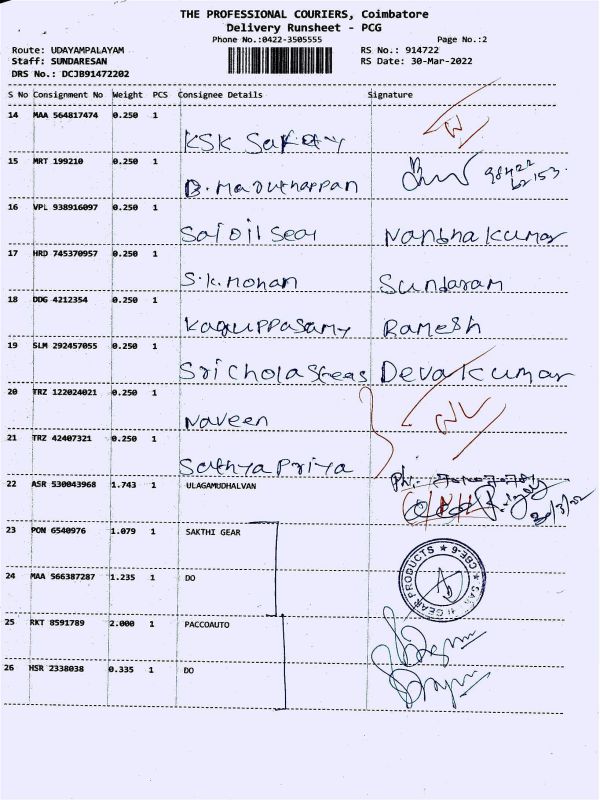 THE PROFESSIONAL COURIERS, Coimbatore
Delivery Runsheet - PCG
Phone No.:0422-3505555 Page No.:2
Route: UDAYAMPALAYAM RS No.: 914722
Staff: SUNDARESAN RS Date: 30-Mar-2022
DRS No.: DCJB91472202
S No Consignment No Weight PCS Consignee Details Signature
14 MAA 564817474 0.250 1
KSK Safety
15 MRT 199210 0.250 1
B. Maruthappan 98422 62153
16 VPL 938916097 0.250 1
Sai Oil Sear Nandha Kumar
17 HRD 745370957 0.250 1
S.K. Mohan Sundaram
18 DDG 4212354 0.250 1
Kaguppasamy Ramesh
19 SLM 292457055 0.250 1
Sri Chola Deva Kumar
20 TRZ 122024021 0.250 1
Naveen
21 TRZ 42407321 0.250 1
Sathya Priya
22 ASR 530043968 1.743 1 ULAGAMUDHALVAN Ph:
30/3/22
23 PON 6540976 1.079 1 SAKTHI GEAR
24 MAA 566387287 1.235 1 DO
GEAR PRODUCTS ★ CBE-6 ★
25 RKT 8591789 2.000 1 PACCOAUTO
26 HSR 2338038 0.335 1 DO